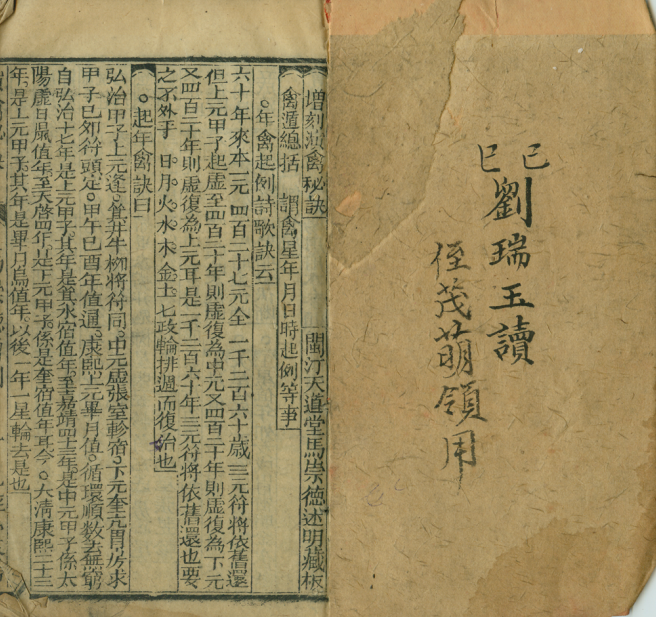 巳巳
劉瑞玉讀
侄茂萌領用
增刻演禽秘訣 閩汀天道堂馬崇德述明藏板
禽遁總括 謂禽星年月日時起例等事
○年禽起例詩歌訣云
六十年來本一元 四百二十七元全 一千二百六十歲 三元符將依舊還
但上元甲子起虛至四百二十年則虛復為中元又四百二十年則虛復為下元
又四百二十年則虛復為上元耳是一千二百六十年三元符將依舊還也要
之不外乎 日月火水木金土七政輪排週而復始也
○起年禽訣曰
弘治甲子上元逢箕井牛柳將符同中元虛張室軫宿下元奎亢胃房求
甲子己卯符頭定甲午己酉年值遁康熙上元畢月值循環順數去無窮
自弘治十七年是上元甲子其年是箕水宿值年至嘉靖四十三年是中元甲子係太
陽虛日鼠值年至天啓四年是上元甲子係是奎宿值年耳今 大清康熙二十三
年是上元甲子其年是畢月烏值年以後一年一星輪去是也